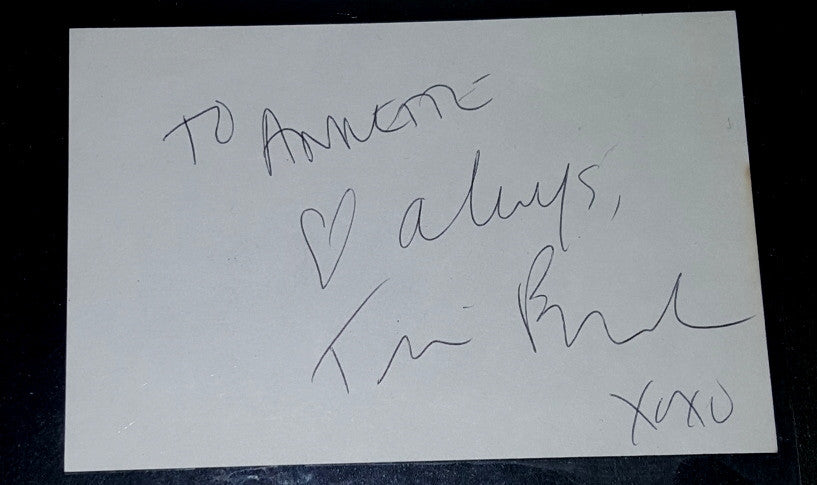 TO ANNETTE
♡ always,
Tim
XOXO